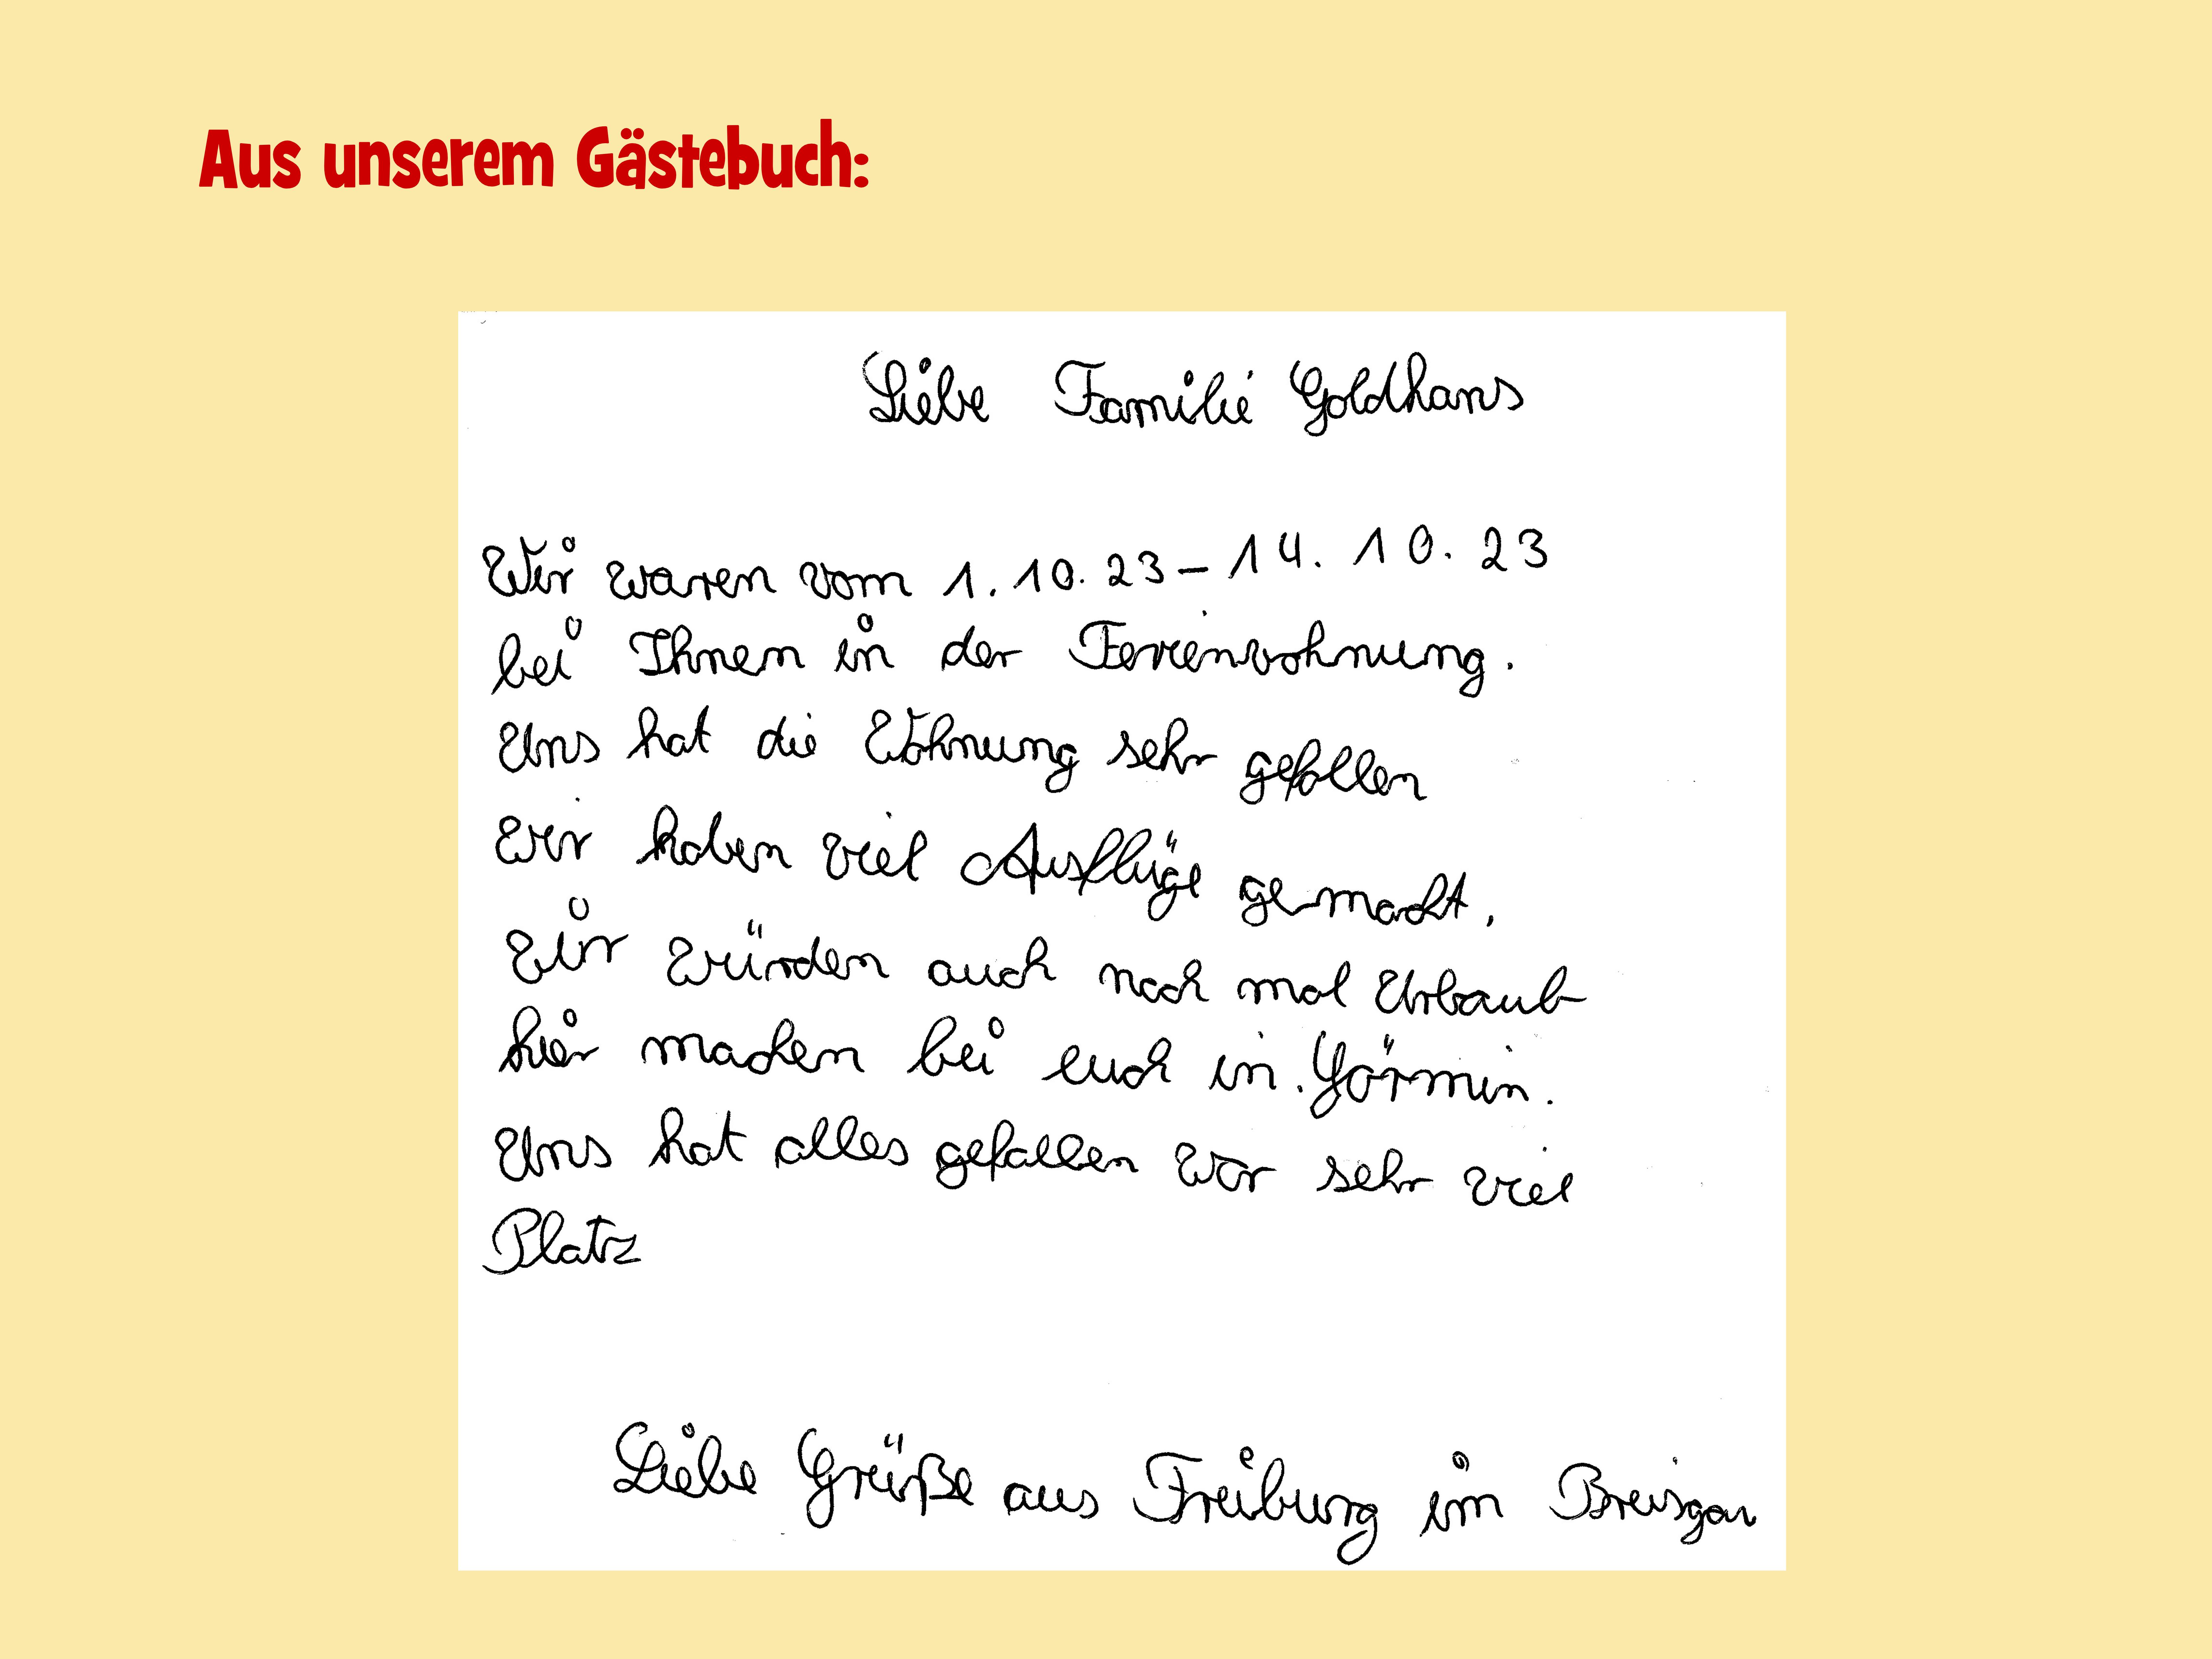 Aus unserem Gästebuch:
Liebe Familie Goldhans
Wir waren vom 1.10.23-14.10.23
bei Ihnen in der Ferienwohnung.
Uns hat die Wohnung sehr gefallen
Wir haben viel Ausflüge gemacht.
Wir würden auch noch mal Urlaub
hier machen bei euch in Görmin.
Uns hat alles gefallen War sehr viel
Platz
Liebe Grüße aus Freiburg im Breisgau